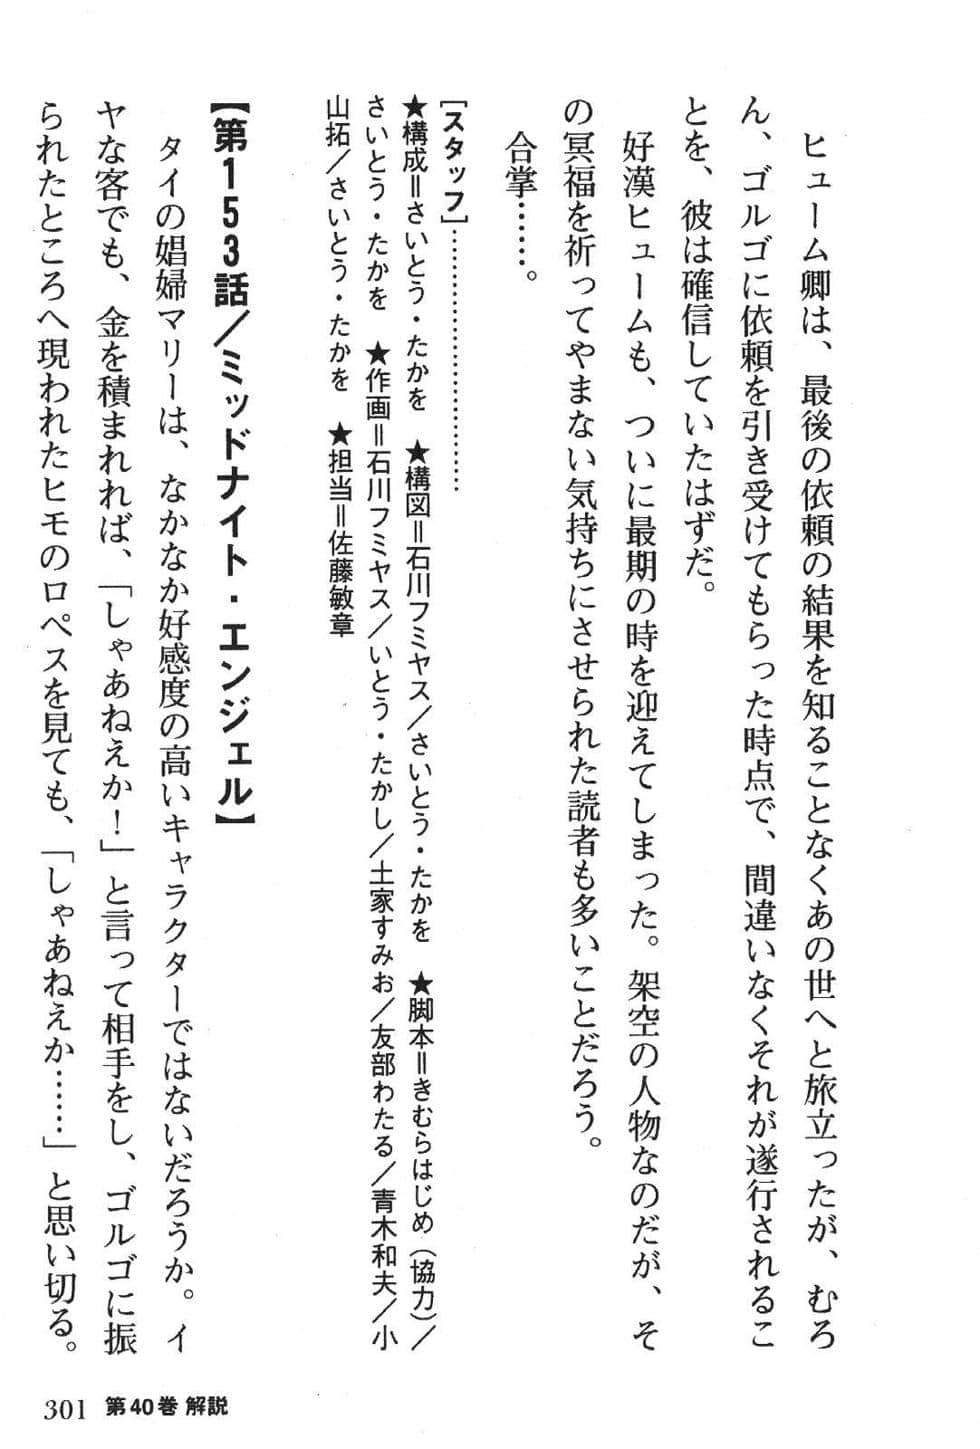 ヒューム卿は、最後の依頼の結果を知ることなくあの世へと旅立ったが、むろ
ん、ゴルゴに依頼を引き受けてもらった時点で、間違いなくそれが遂行されるこ
とを、彼は確信していたはずだ。
好漢ヒュームも、ついに最期の時を迎えてしまった。架空の人物なのだが、そ
の冥福を祈ってやまない気持ちにさせられた読者も多いことだろう。
合掌……。
［スタッフ］………………………………
★構成＝さいとう・たかを　★構図＝石川フミヤス／さいとう・たかを　★脚本＝きむらはじめ（協力）／
さいとう・たかを　★作画＝石川フミヤス／いとう・たかし／土家すみお／友部わたる／青木和夫／小
山拓／さいとう・たかを　★担当＝佐藤敏章
【第153話／ミッドナイト・エンジェル】
タイの娼婦マリーは、なかなか好感度の高いキャラクターではないだろうか。イ
ヤな客でも、金を積まれれば、「しゃあねえか！」と言って相手をし、ゴルゴに振
られたところへ現われたヒモのロペスを見ても、「しゃあねえか……」と思い切る。
301 第40巻 解説